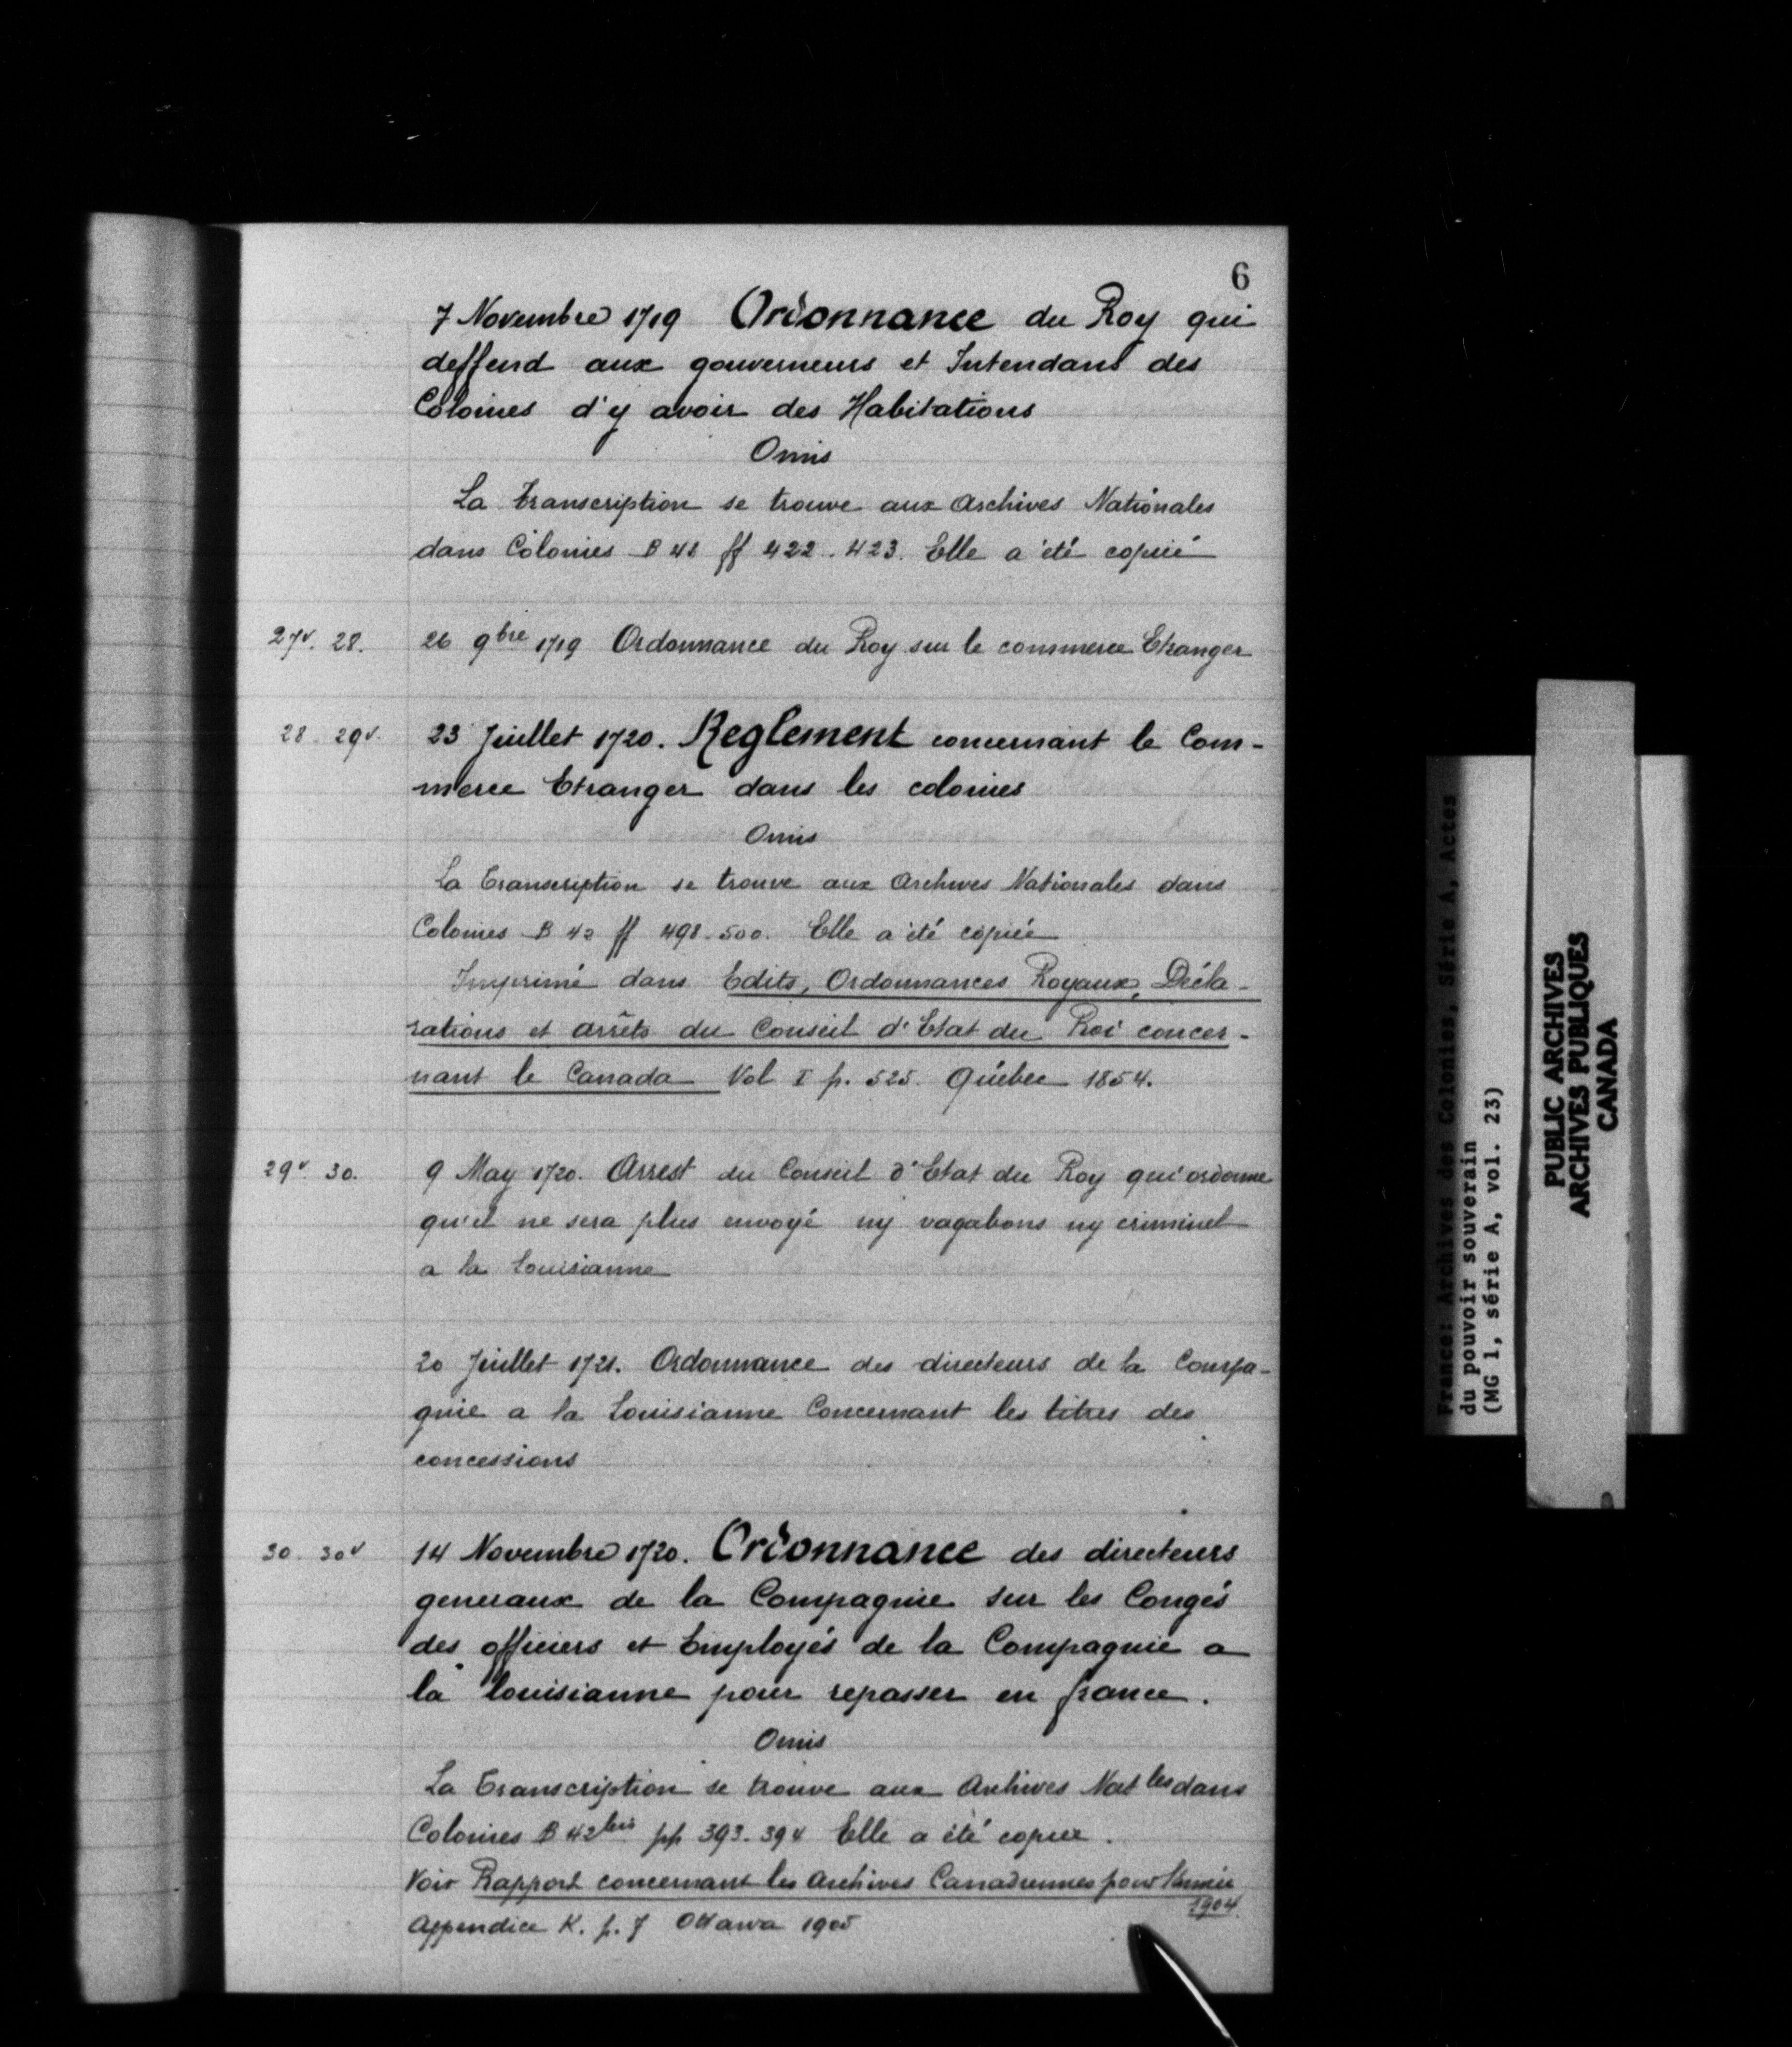 6
7 Novembre 1719 Ordonnance du Roy qui
deffend aux gouverneurs et Intendans des
Colonies d'y avoir des Habitations
Omis
La transcription se trouve aux Archives Nationales
dans Colonies B 42 ff 422-423. Elle a été copiée
27v. 28. 26 9bre 1719 Ordonnance du Roy sur le commerce Etranger
28. 29v. 23 Juillet 1720. Reglement concernant le Com-
merce Etranger dans les colonies
Omis
La transcription se trouve aux Archives Nationales dans
Colonies B 42 ff 498-500. Elle a été copiée
Imprimé dans Edits, Ordonnances Royaux, Décla-
rations et arrêts du Conseil d'Etat du Roi concer-
nant le Canada Vol I p. 525. Québec 1854.
29v 30. 9 May 1720. Arrest du Conseil d'Etat du Roy qui ordonne
qu'il ne sera plus envoyé ny vagabons ny criminel
a la Louisianne
20 Juillet 1721. Ordonnance des directeurs de la Compa-
gnie a la Louisianne Concernant les titres des
concessions
30. 30v 14 Novembre 1720. Ordonnance des directeurs
generaux de la Compagnie sur les Congés
des officiers et Employés de la Compagnie a
la louisianne pour repasser en france.
Omis
La transcription se trouve aux Archives Natles dans
Colonies B 42bis pp 393-394 Elle a été copiée.
Voir Rapport concernant les Archives Canadiennes pour l'année
1904
Appendice K. p. 7 Ottawa 1905
France: Archives des Colonies, Série A, Actes
du pouvoir souverain
(MG 1, série A, vol. 23)
PUBLIC ARCHIVES
ARCHIVES PUBLIQUES
CANADA